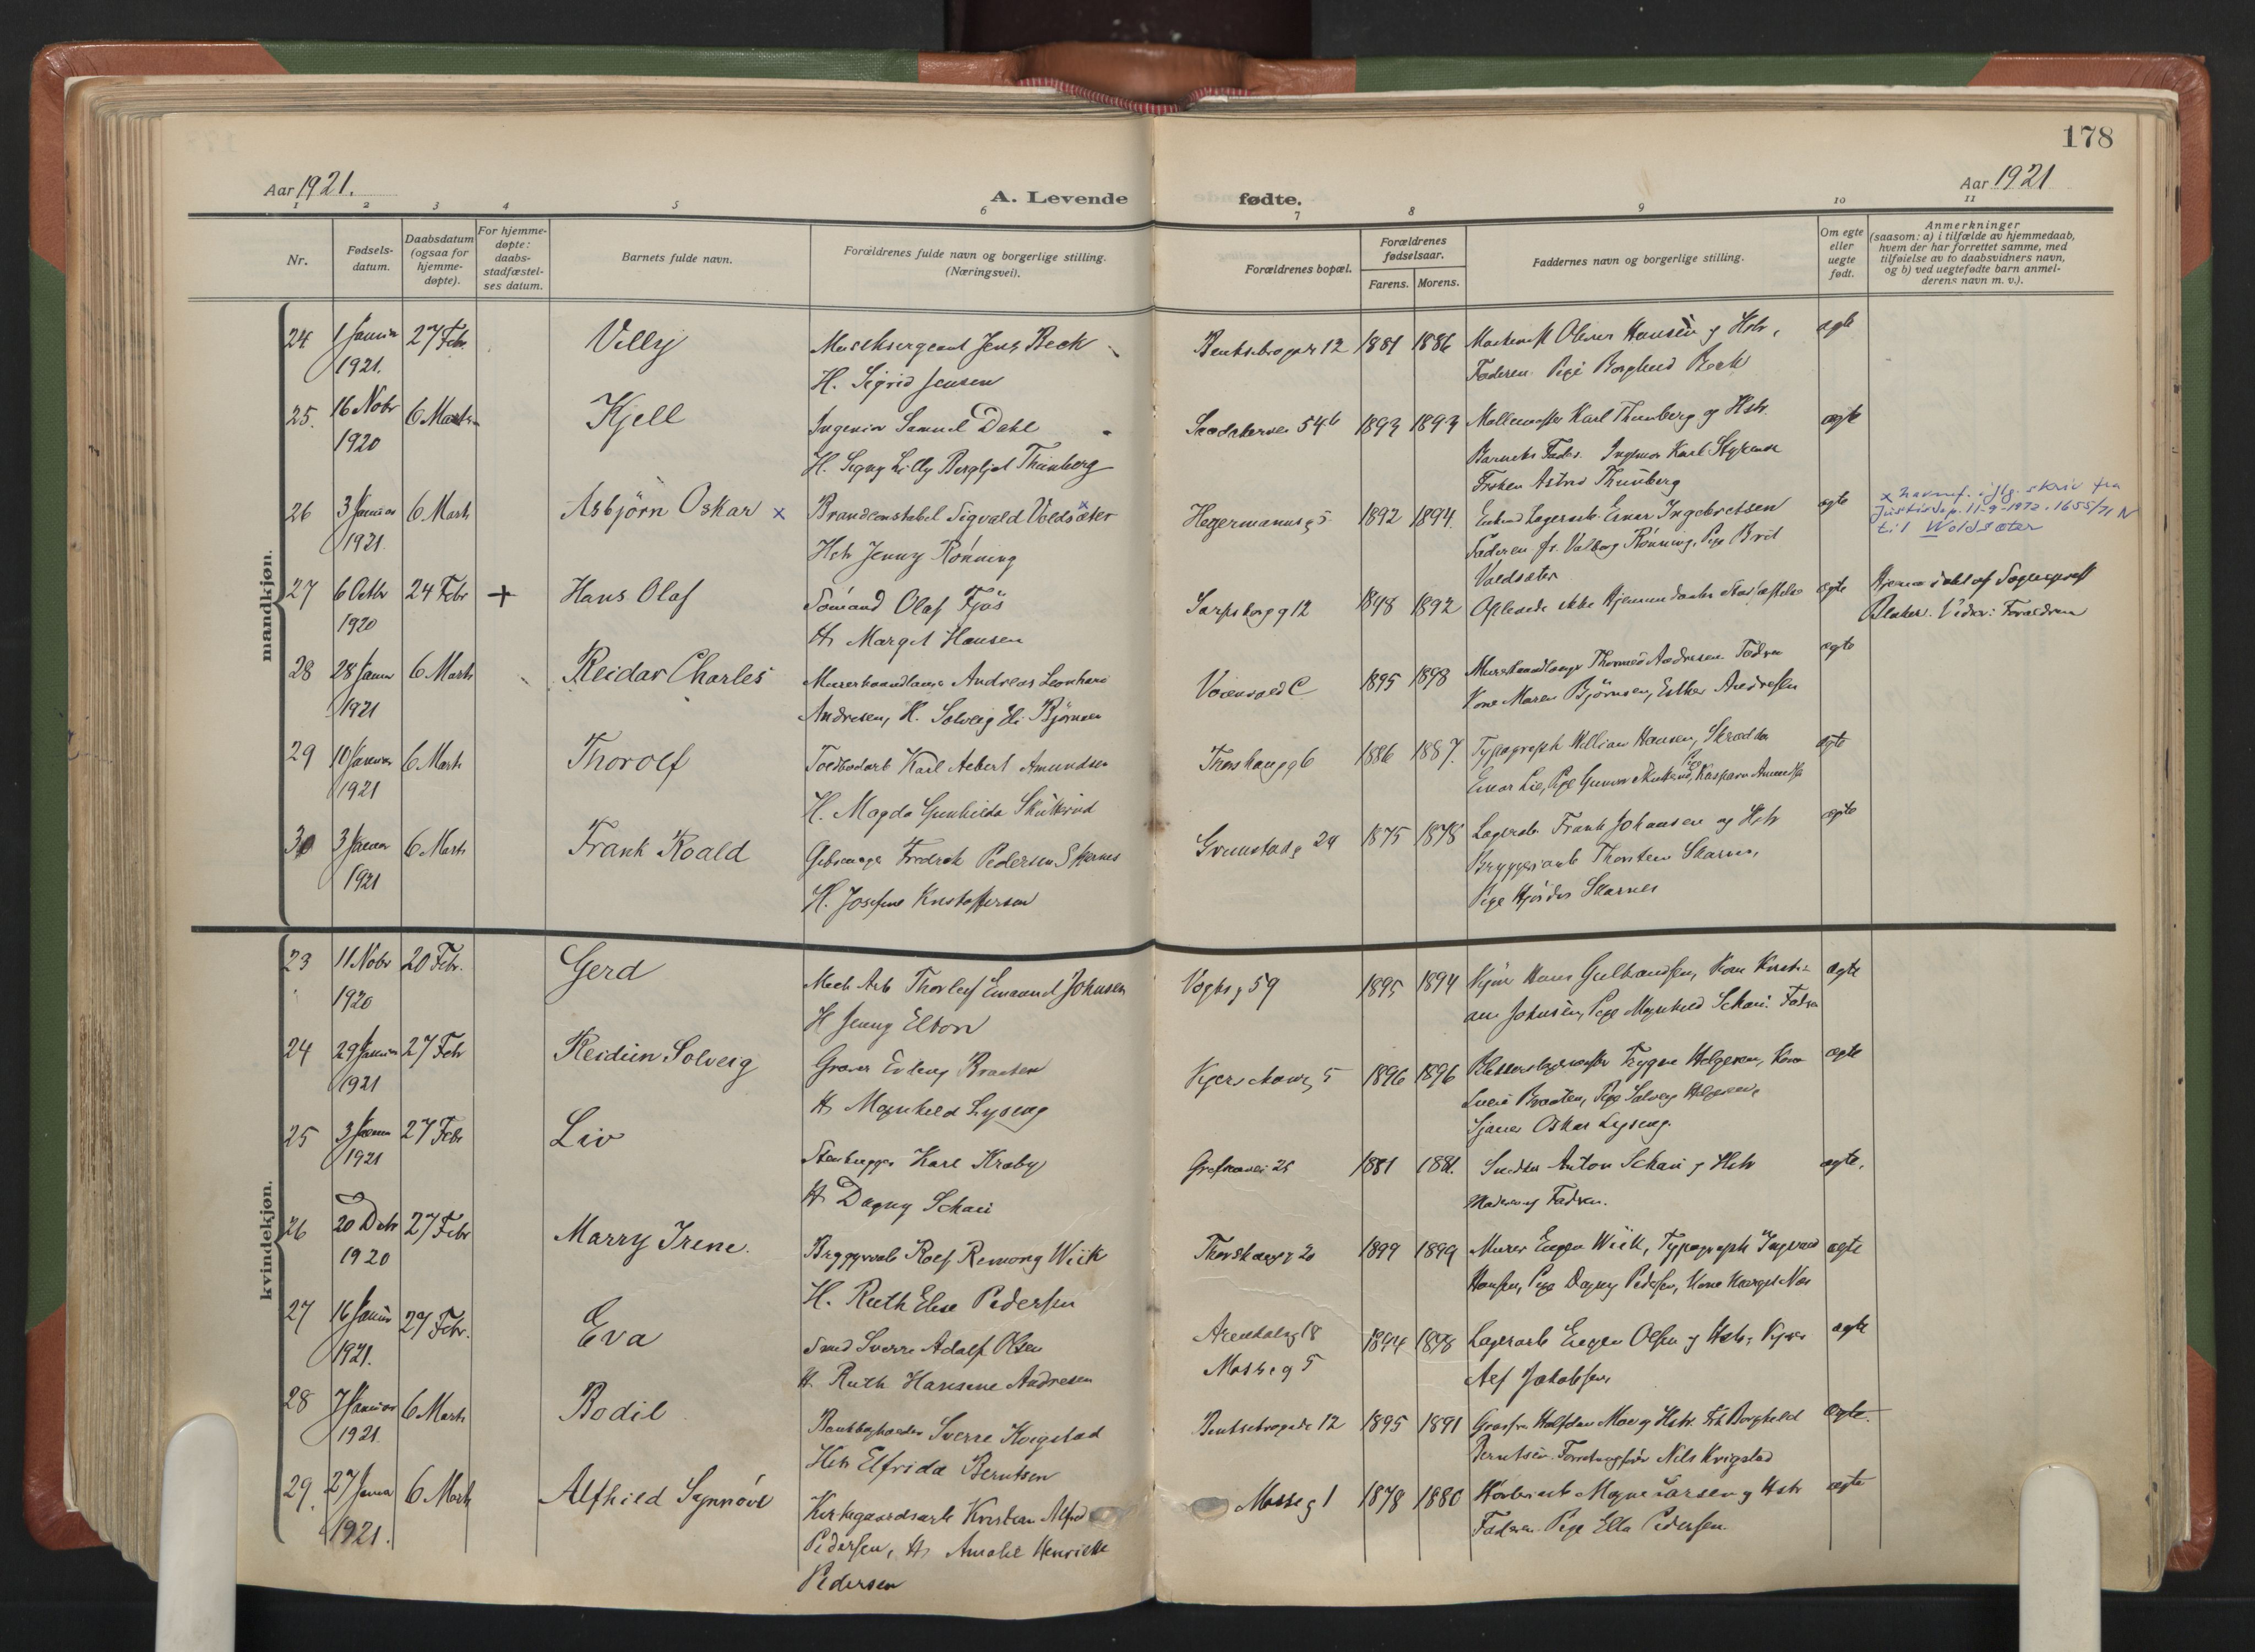 178
Aar 1921.
A. Levende
fødte.
Aar 1921
1 2 3 4 5 6 7 8 9 10 11
Nr.
Fødsels-
datum.
Daabsdatum
(ogsaa for
hjemme-
døpte).
For hjemme-
døpte:
daabs-
stadfæstel-
ses datum.
Barnets fulde navn.
Forældrenes fulde navn og borgerlige stilling.
(Næringsvei).
Forældrenes bopæl.
Forældrenes
fødselsaar.
Farens. Morens.
Faddernes navn og borgerlige stilling.
Om egte
eller
uegte
født.
Anmerkninger
(saasom: a) i tilfælde av hjemmedaab,
hvem der har forrettet samme, med
tilføielse av to daabsvidners navn,
og b) ved uegtefødte barn anmel-
derens navn m. v.).
mandkjøn.
24 1 Januar 27 Febr. Villy Musiksergeant Jens Beck 12 1881 1886 Hansen og Hstr, egte
1921. H. Sigrid Jensen Faderen. Pige Borghild Beck
25. 16 Novbr 6 Marts Kjell Ingeniør Samuel Dahl 54b 1893 1893 Karl Thunberg og Hstr. egte
1920 H. Signy Lilly Bergljot Thunberg Barnets Fader. Ingeniør Karl
Frøken Astrid Thunberg
26 3 Januar 6 Marts Asbjörn Oskar x Brandkonstabel Sigvald Voldsæter x Hegermannsg 5 1892 1894 Lagerarb. Einar Ingebretsen egte x Navnef. iflg. skriv fra
1921 Hstr Jenny Rönning Faderen fr. Valborg Rönning, Pige Brit Justisdep. 11-9-1972. 1655/71 N
Voldsæter til Woldsæter
27 6 Octbr 24 Febr + Hans Olaf Sömand Olaf Fjös Sarpsborgg 12 1898 1892 Oplæste ikke egte Hjemmedöbt af Sogneprest
1920 H. Margit Hansen Blaker. Vidner: Forældrene
28 28 Januar 6 Marts Reidar Charles Murerhaandlanger Andreas Leonhard 1895 1898 Murerhaandlanger Andresen. Fadren egte
1921 Andresen, H. Solveig Björnsen Kone Maren Björnsen, Esther Andresen
29 10 Januar 6 Marts Thorolf Karl Albert Amundsen 6 1886 1887. Typograph William Hansen, Skrædder egte
1921 H. Magda Gunhilda Einar Lie, Pige Gunvor Pige Kaspara
30 3 Januar 6 Marts Frank Roald Fredrik Pedersen Skarnes Grimstadg 24 1875 1878 Lagerarb. Frank Johansen og Hstr egte
1921 H. Josefine Kristoffersen Bryggeriarb Thorsten Skarnes,
Pige Hjördis Skarnes
kvindekjøn.
23 11 Novbr 20 Febr. Gerd Mek Arb Thorleif Emanuel Johnsen Vogtsg 59 1895 1894 Hans Gulbrandsen, Kone Kristi- egte
1920 H Jenny Elton ane Johnsen, Pige Magnhild Schau. Fadren
24 29 Januar 27 Febr Reidun Solveig Graver Braaten 5 1896 1896 Trygve Helgesen, Kone egte
1921 H Magnhild Lyseng Braaten, Pige Solveig Helgesen,
Oskar Lyseng.
25 3 Januar 27 Febr Liv Stenhugger Karl Kraby Grefsenvei 25 1881 1881. Snedker Anton Schau og Hstr egte.
1921 H Dagny Schau Moderen og Fadren.
26 20 Decbr 27 Febr Marry Irene. Bryggeriarb Rolf Remong Wiik 20 1899 1899 Murer Wiik, Typograph Ingvald egte
1920 H. Ruth Elise Pedersen Hansen, Pige Dagny Pedersen, Kone
27 16 Januar 27 Febr. Eva Smed Sverre Adolf Olsen Arendalsg 18 1894 1898 Lagerarb Olsen og Hstr, egte
1921. H. Ruth Hansine Andresen Mosseg 5 Alf Jakobsen
28 7 Januar 6 Marts Bodil Sverre Kvigstad 12 1895 1891 Halfdan Moe og Hstr Frk Borghild egte.
1921 Hstr Elfrida Berntsen Berntsen. Nils Kvigstad
29. 27 Januar 6 Marts Alfhild Synnöve Kirkegaardsarb Kristian Alfred Mosseg 1 1878 1880 Larsen og Hstr egte
1921. Pedersen, H Amalie Henriette Fadren. Pige Ella Pedersen.
Pedersen